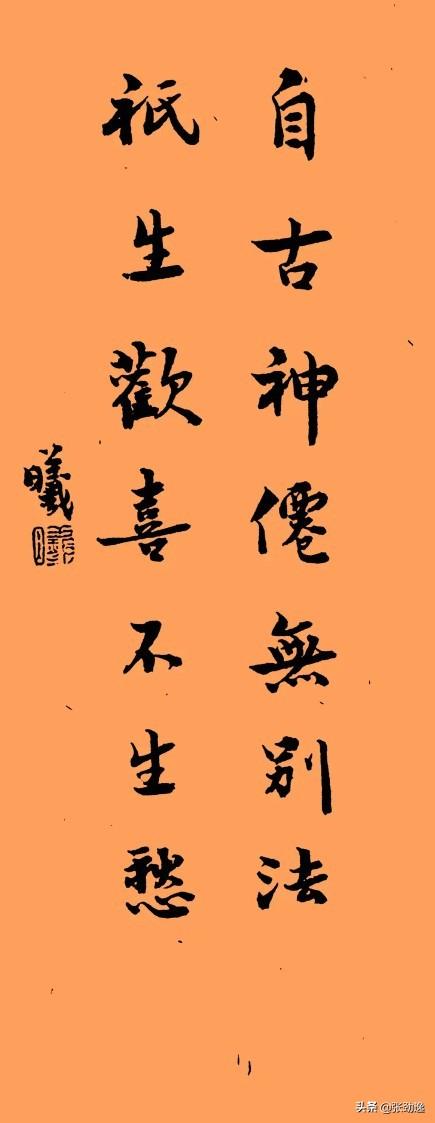 自古神僊無别法
祇生歡喜不生愁
曦
头条 @张劲逸